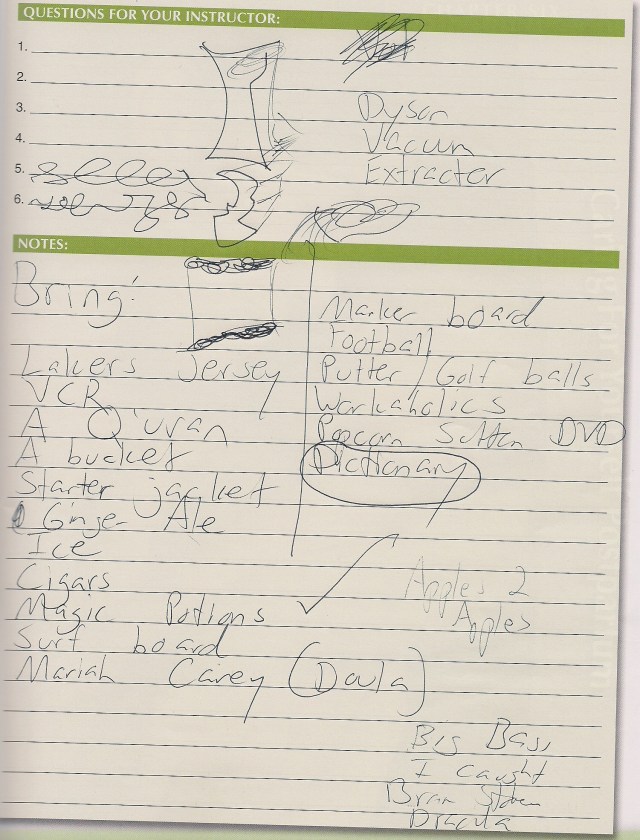 QUESTIONS FOR YOUR INSTRUCTOR:
1.
2.
3.
4.
5.
6.
Dyson
Vacuum
Extractor
NOTES:
Bring:
Lakers Jersey
VCR
A Q'uran
A bucket
Starter jacket
Ginger Ale
Ice
Cigars
Magic Potions
Surf board
Mariah Carey (Doula)
Marker board
Football
Putter / Golf balls
Workaholics
Popcorn Sutton DVD
Dictionary
Apples 2
Apples
Big Bass
I caught
Bram Stoker
Dracula